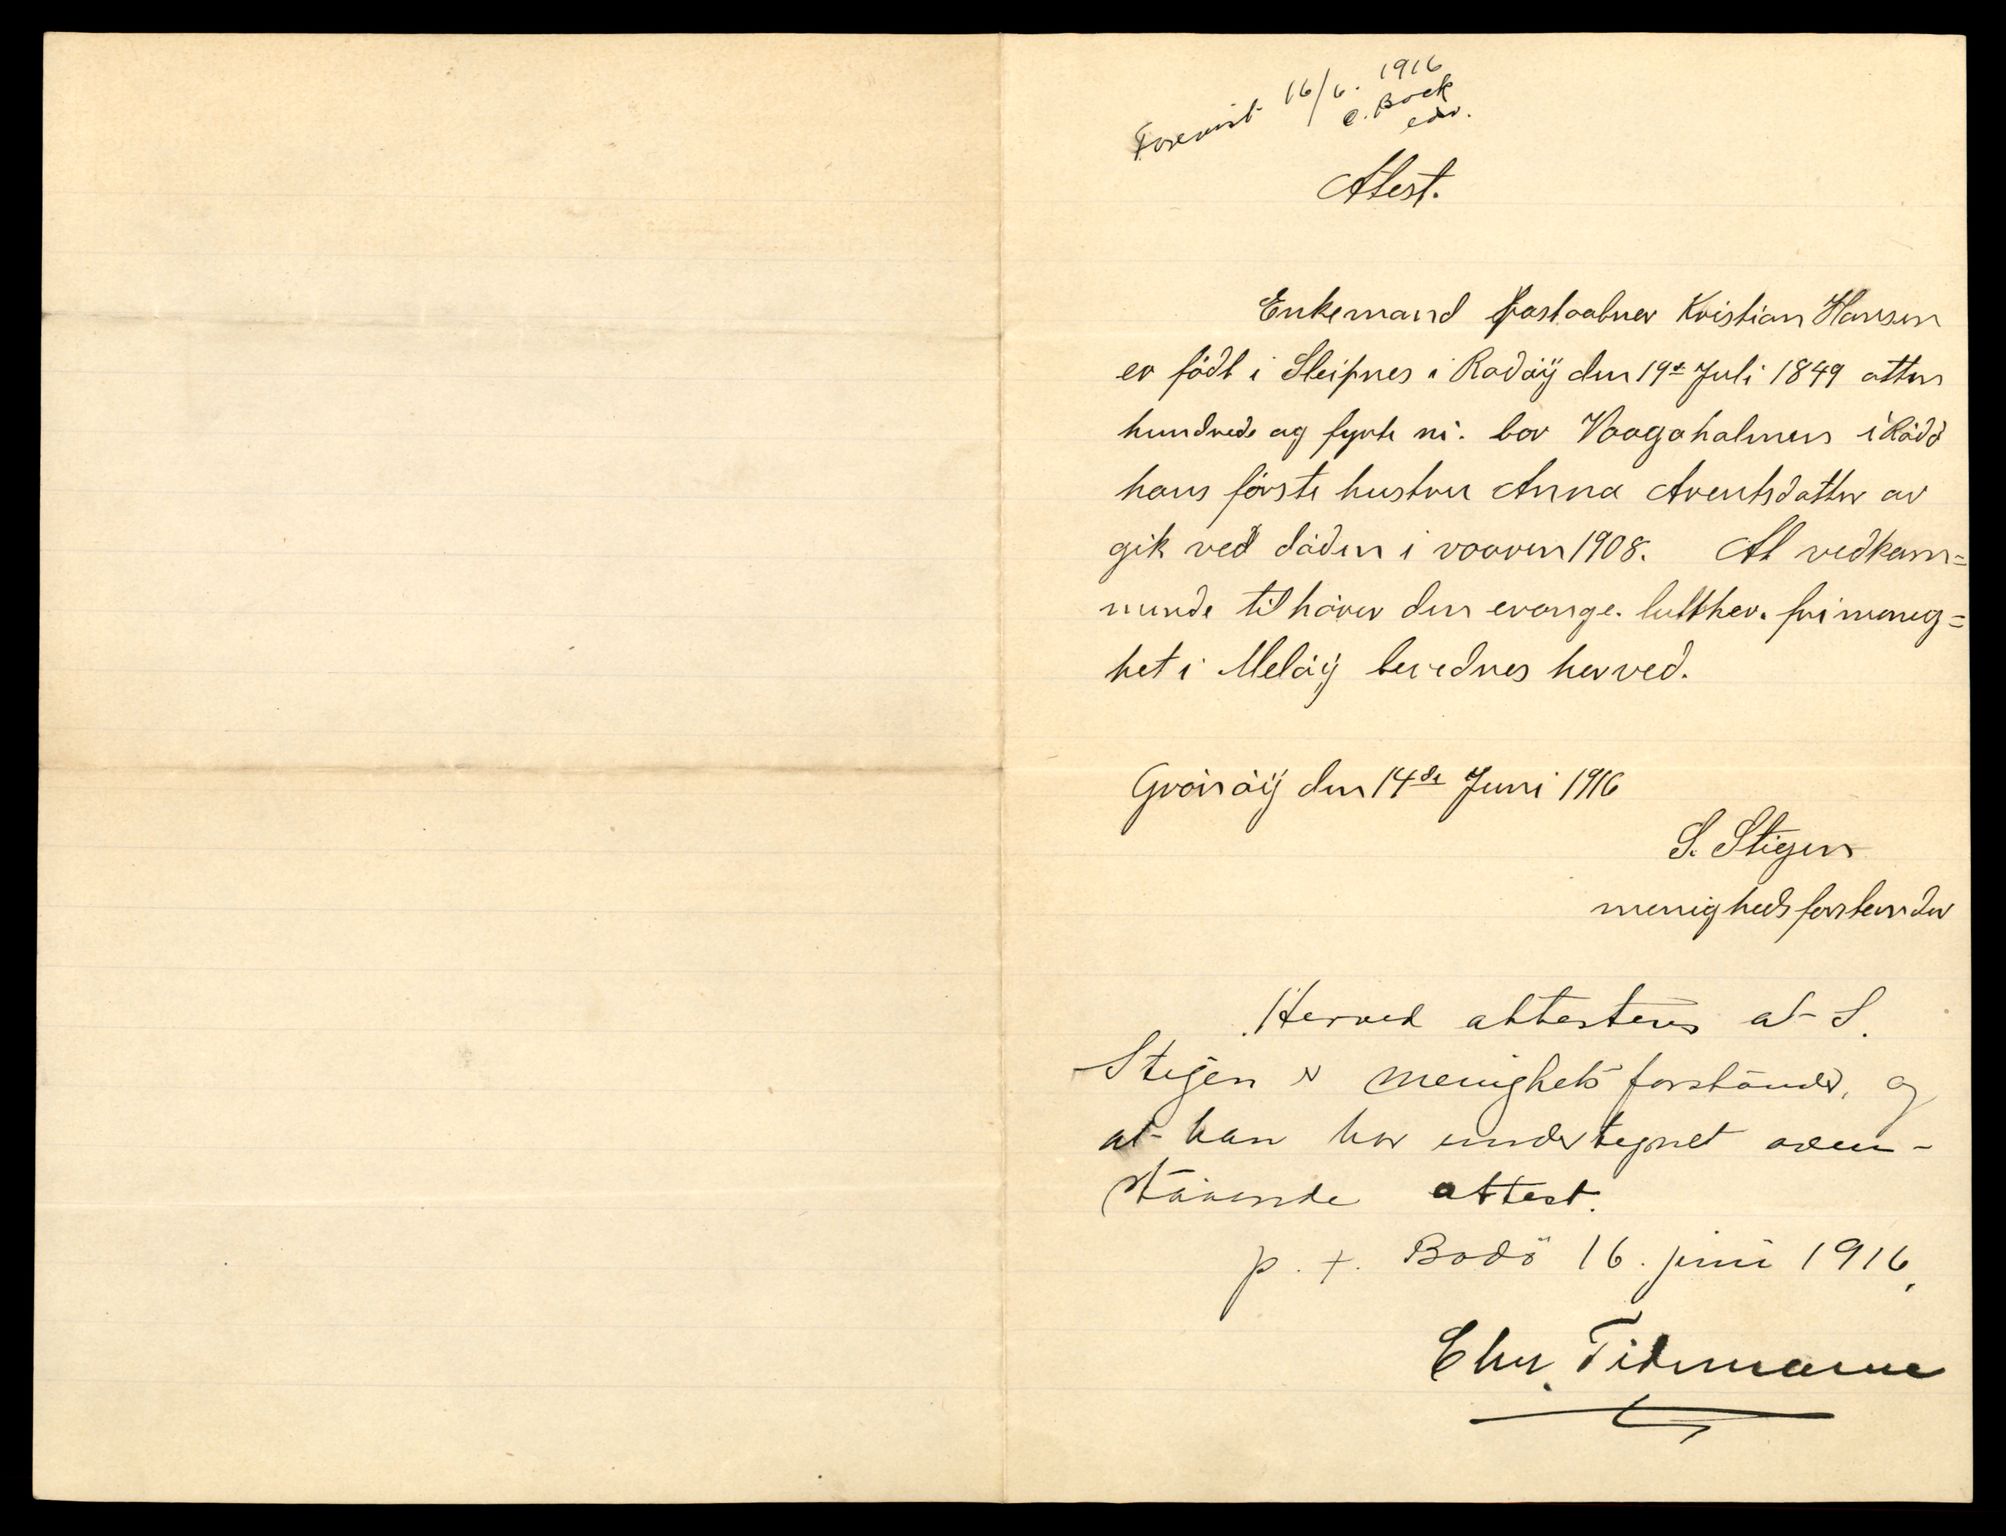 Forevist 16/6. 1916
C. Bock
edv.
Atest.
Enkemand Postaabner Kristian Hansen
er födt i Sleipnes i Rödöÿ den 19de Juli 1849 atten
hundrede og fyrti ni. bor Vaagaholmen i Rödö
hans förste hustru Anna Arentsdatter av
gik ved döden i vaaren 1908. At vedkom=
mende tilhörer den evange. luther. frimenig=
het i Melöÿ bevidnes herved.
Grönöÿ den 14de Juni 1916
S. Stigen
menighedsforstander
Herved attesteres at S.
Stigen er menighetsforstander, og
at han har undertegnet oven-
stående attest.
p. t. Bodö 16. juni 1916.
Chr. Tidemann